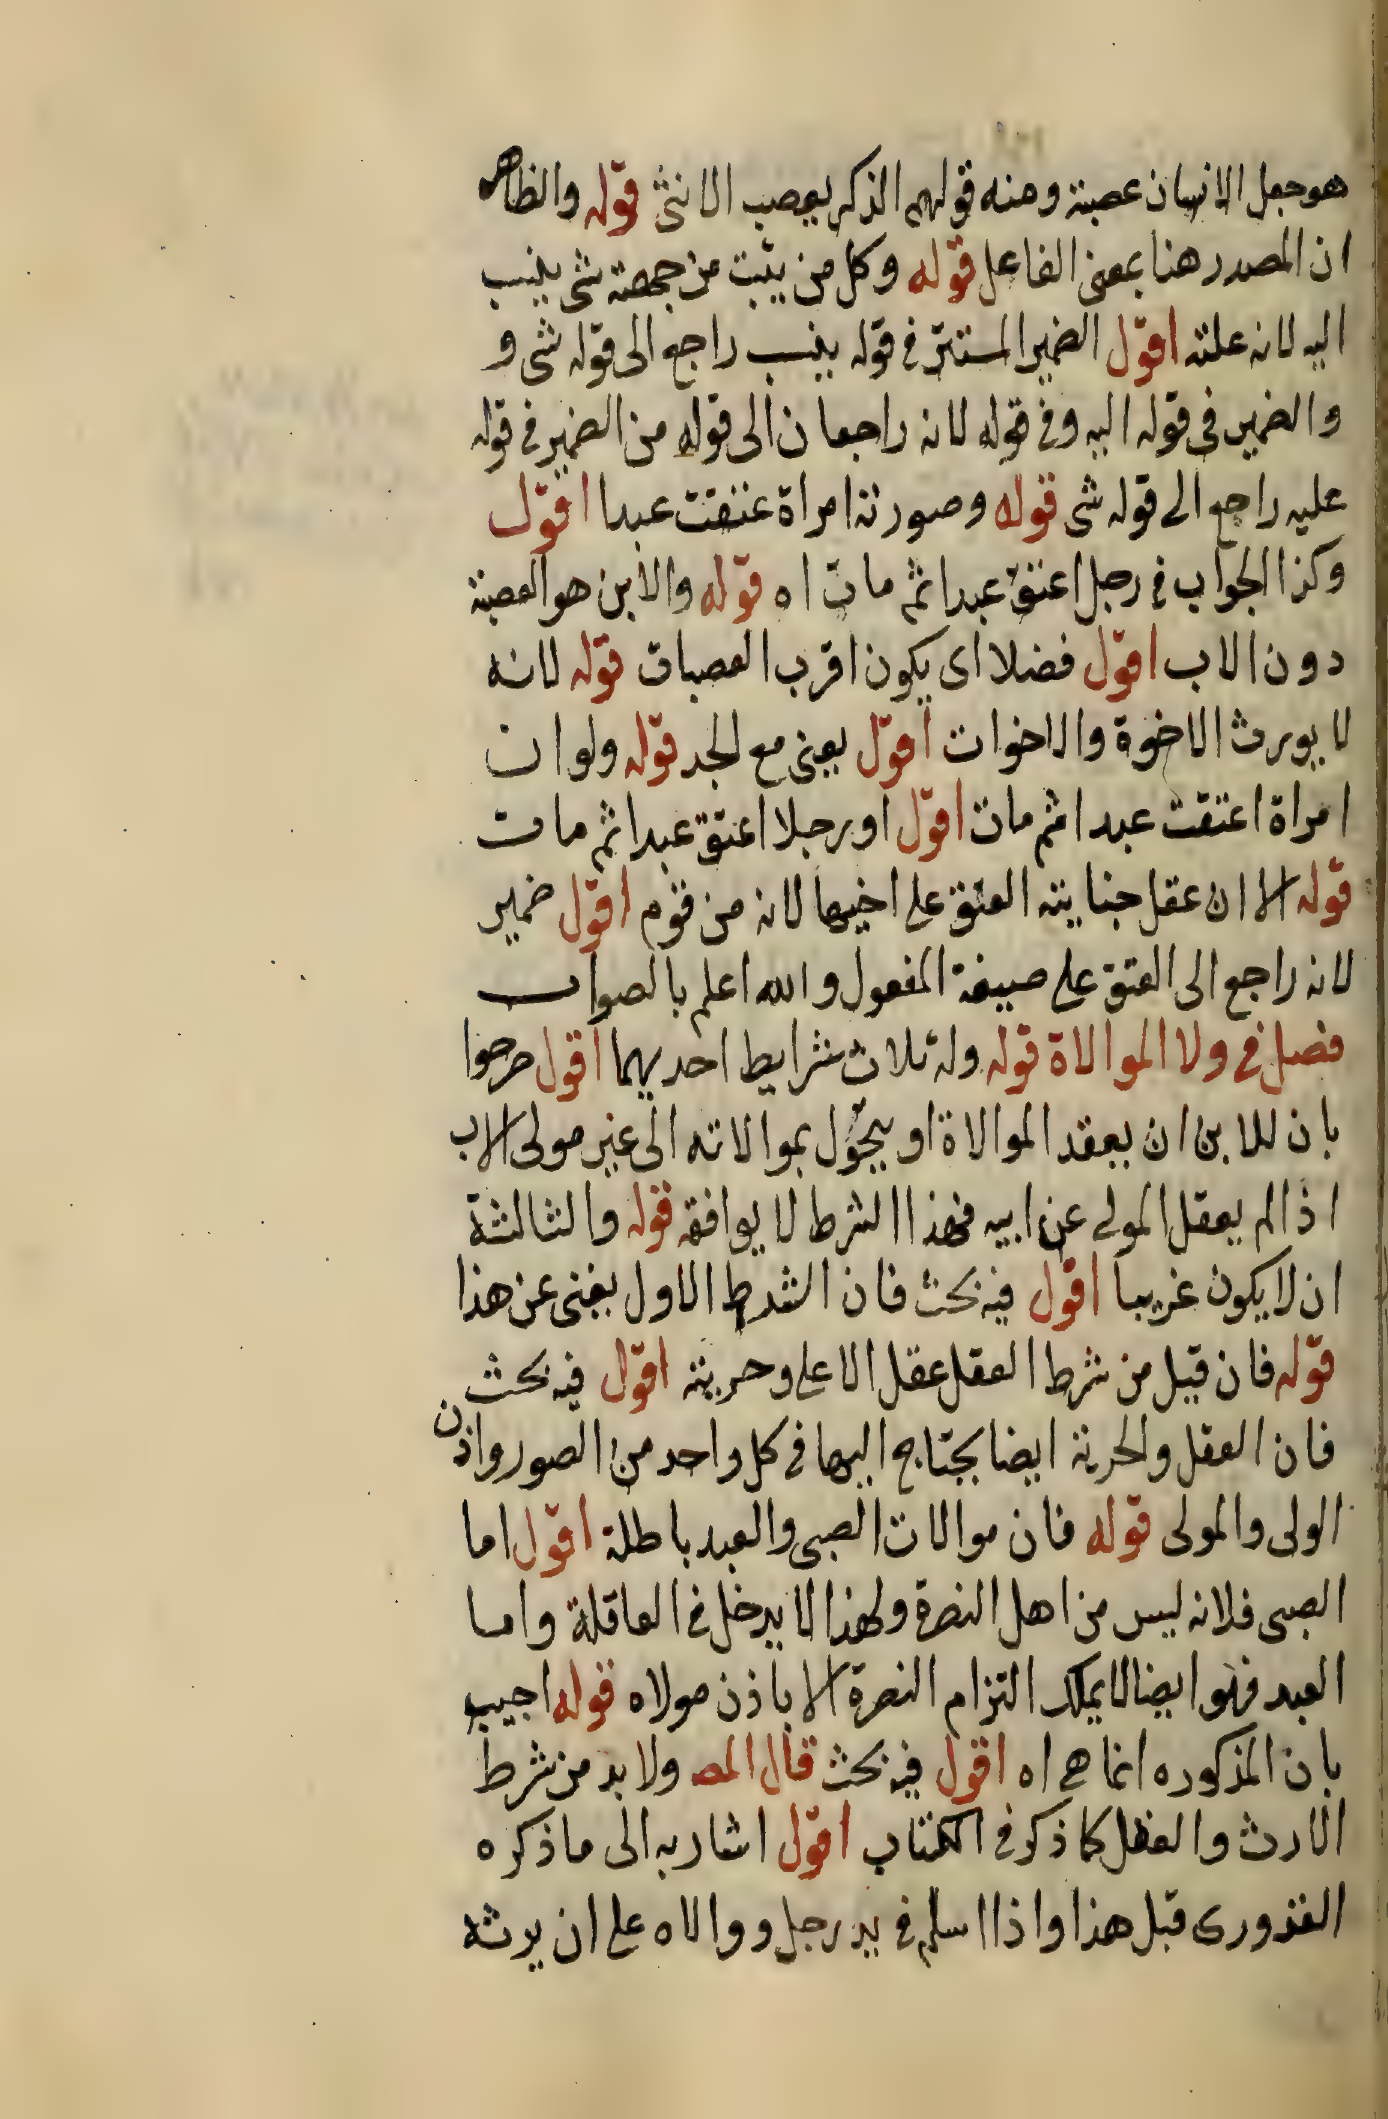 هو جعل الانسان عصبة ومنه قولهم الذكر يعصب الانثى قوله والظاهر
ان المصدر هنا بمعنى الفاعل قوله وكل من يثبت من جهته شى ينسب
اليه لانه علته اقول الضمير المستتر فى قوله ينسب راجع الى قوله شى و
والضمير فى قوله اليه وفى قوله لانه راجعان الى قوله من الضمير فى قوله
عليه راجع الى قوله شى قوله وصورته امراة عتقت عبدا اقول
وكذا الجواب فى رجل اعتق عبدا ثم مات اه قوله والابن هو العصبة
دون الاب اقول فضلا اى يكون اقرب العصبات قوله لانه
لا يورث الاخوة والاخوات اقول يعنى مع الجد قوله ولو ان
امراة اعتقت عبدا ثم مات اقول او رجلا اعتق عبدا ثم مات
قوله الا ان عقل جناية المعتق على اخيها لانه من قوم اقول ضمير
لانه راجع الى المعتق على صيغة المفعول والله اعلم بالصواب
فصل فى ولا الموالاة قوله وله ثلاث شرايط احديهما اقول صرحوا
بان للابن ان يعقد الموالاة او يتحول بموالاته الى غير مولى الاب
اذا لم يعقل المولى عن ابيه فهذا الشرط لا يوافقه قوله والثالثة
ان لا يكون عربيا اقول فيه بحث فان الشرط الاول يغنى عن هذا
قوله فان قيل من شرط العقل عقل الاعلى وحريته اقول فيه بحث
فان العقل والحرية ايضا يحتاج اليها فى كل واحد من الصور واذن
الولى والمولى قوله فان موالات الصبى والعبد باطلة اقول اما
الصبى فلانه ليس من اهل النصرة ولهذا لا يدخل فى العاقلة واما
العبد فهو ايضا لا يملك التزام النصرة الا باذن مولاه قوله اجيب
بان المذكوره انما هى اه اقول فيه بحث قال المص ولا بد من شرط
الارث والعقل كما ذكر فى الكتاب اقول اشار به الى ما ذكره
القدورى قبل هذا واذا اسلم فى يد رجل ووالاه على ان يرثه